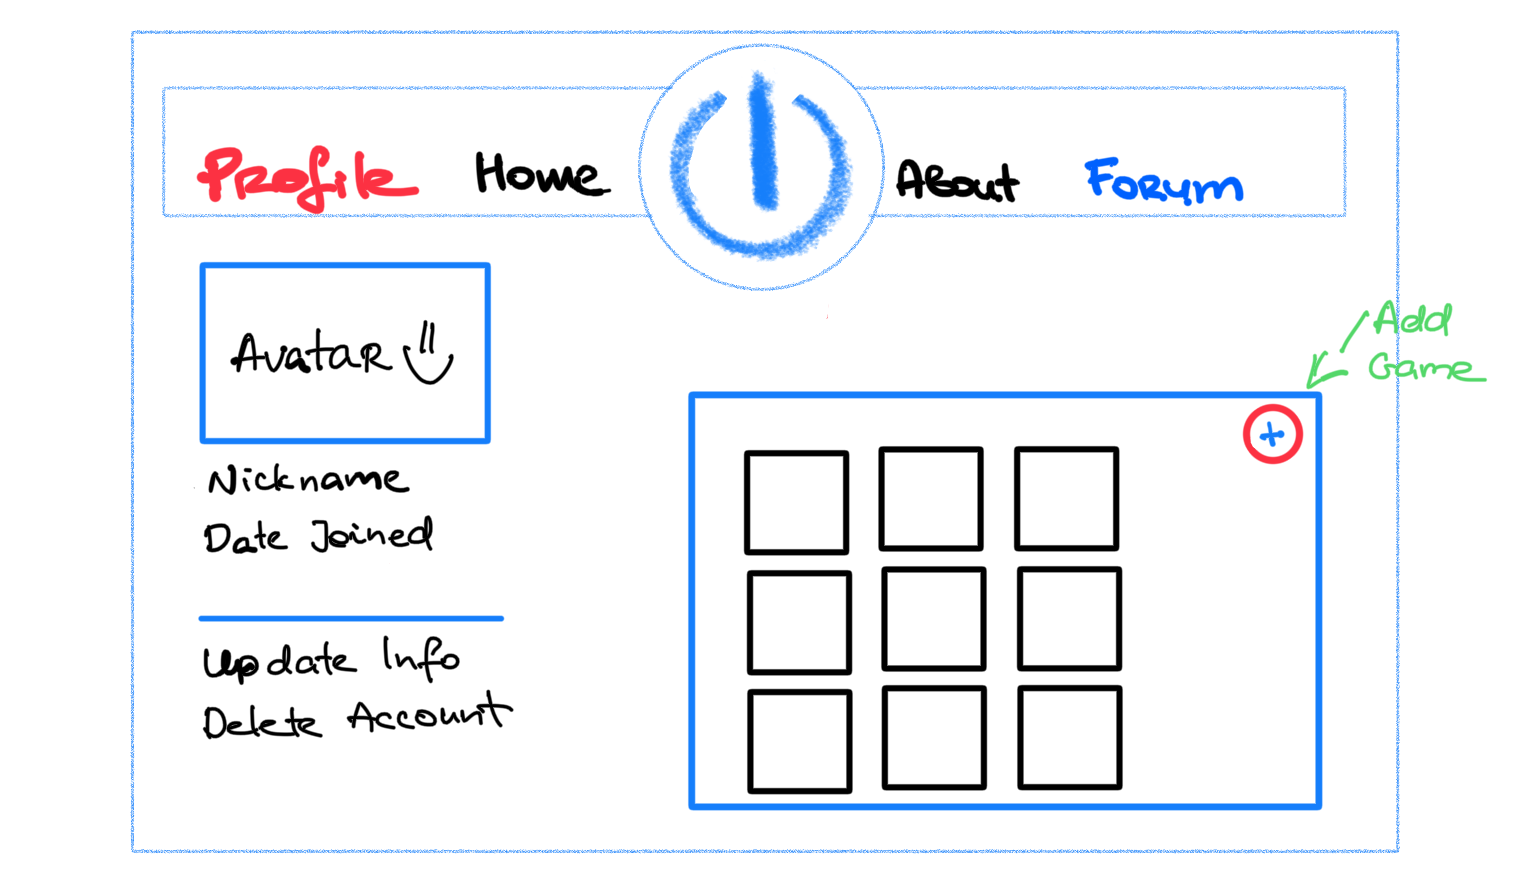 Profile Home About Forum
Avatar
Add
Game
+
Nickname
Date Joined
Update Info
Delete Account